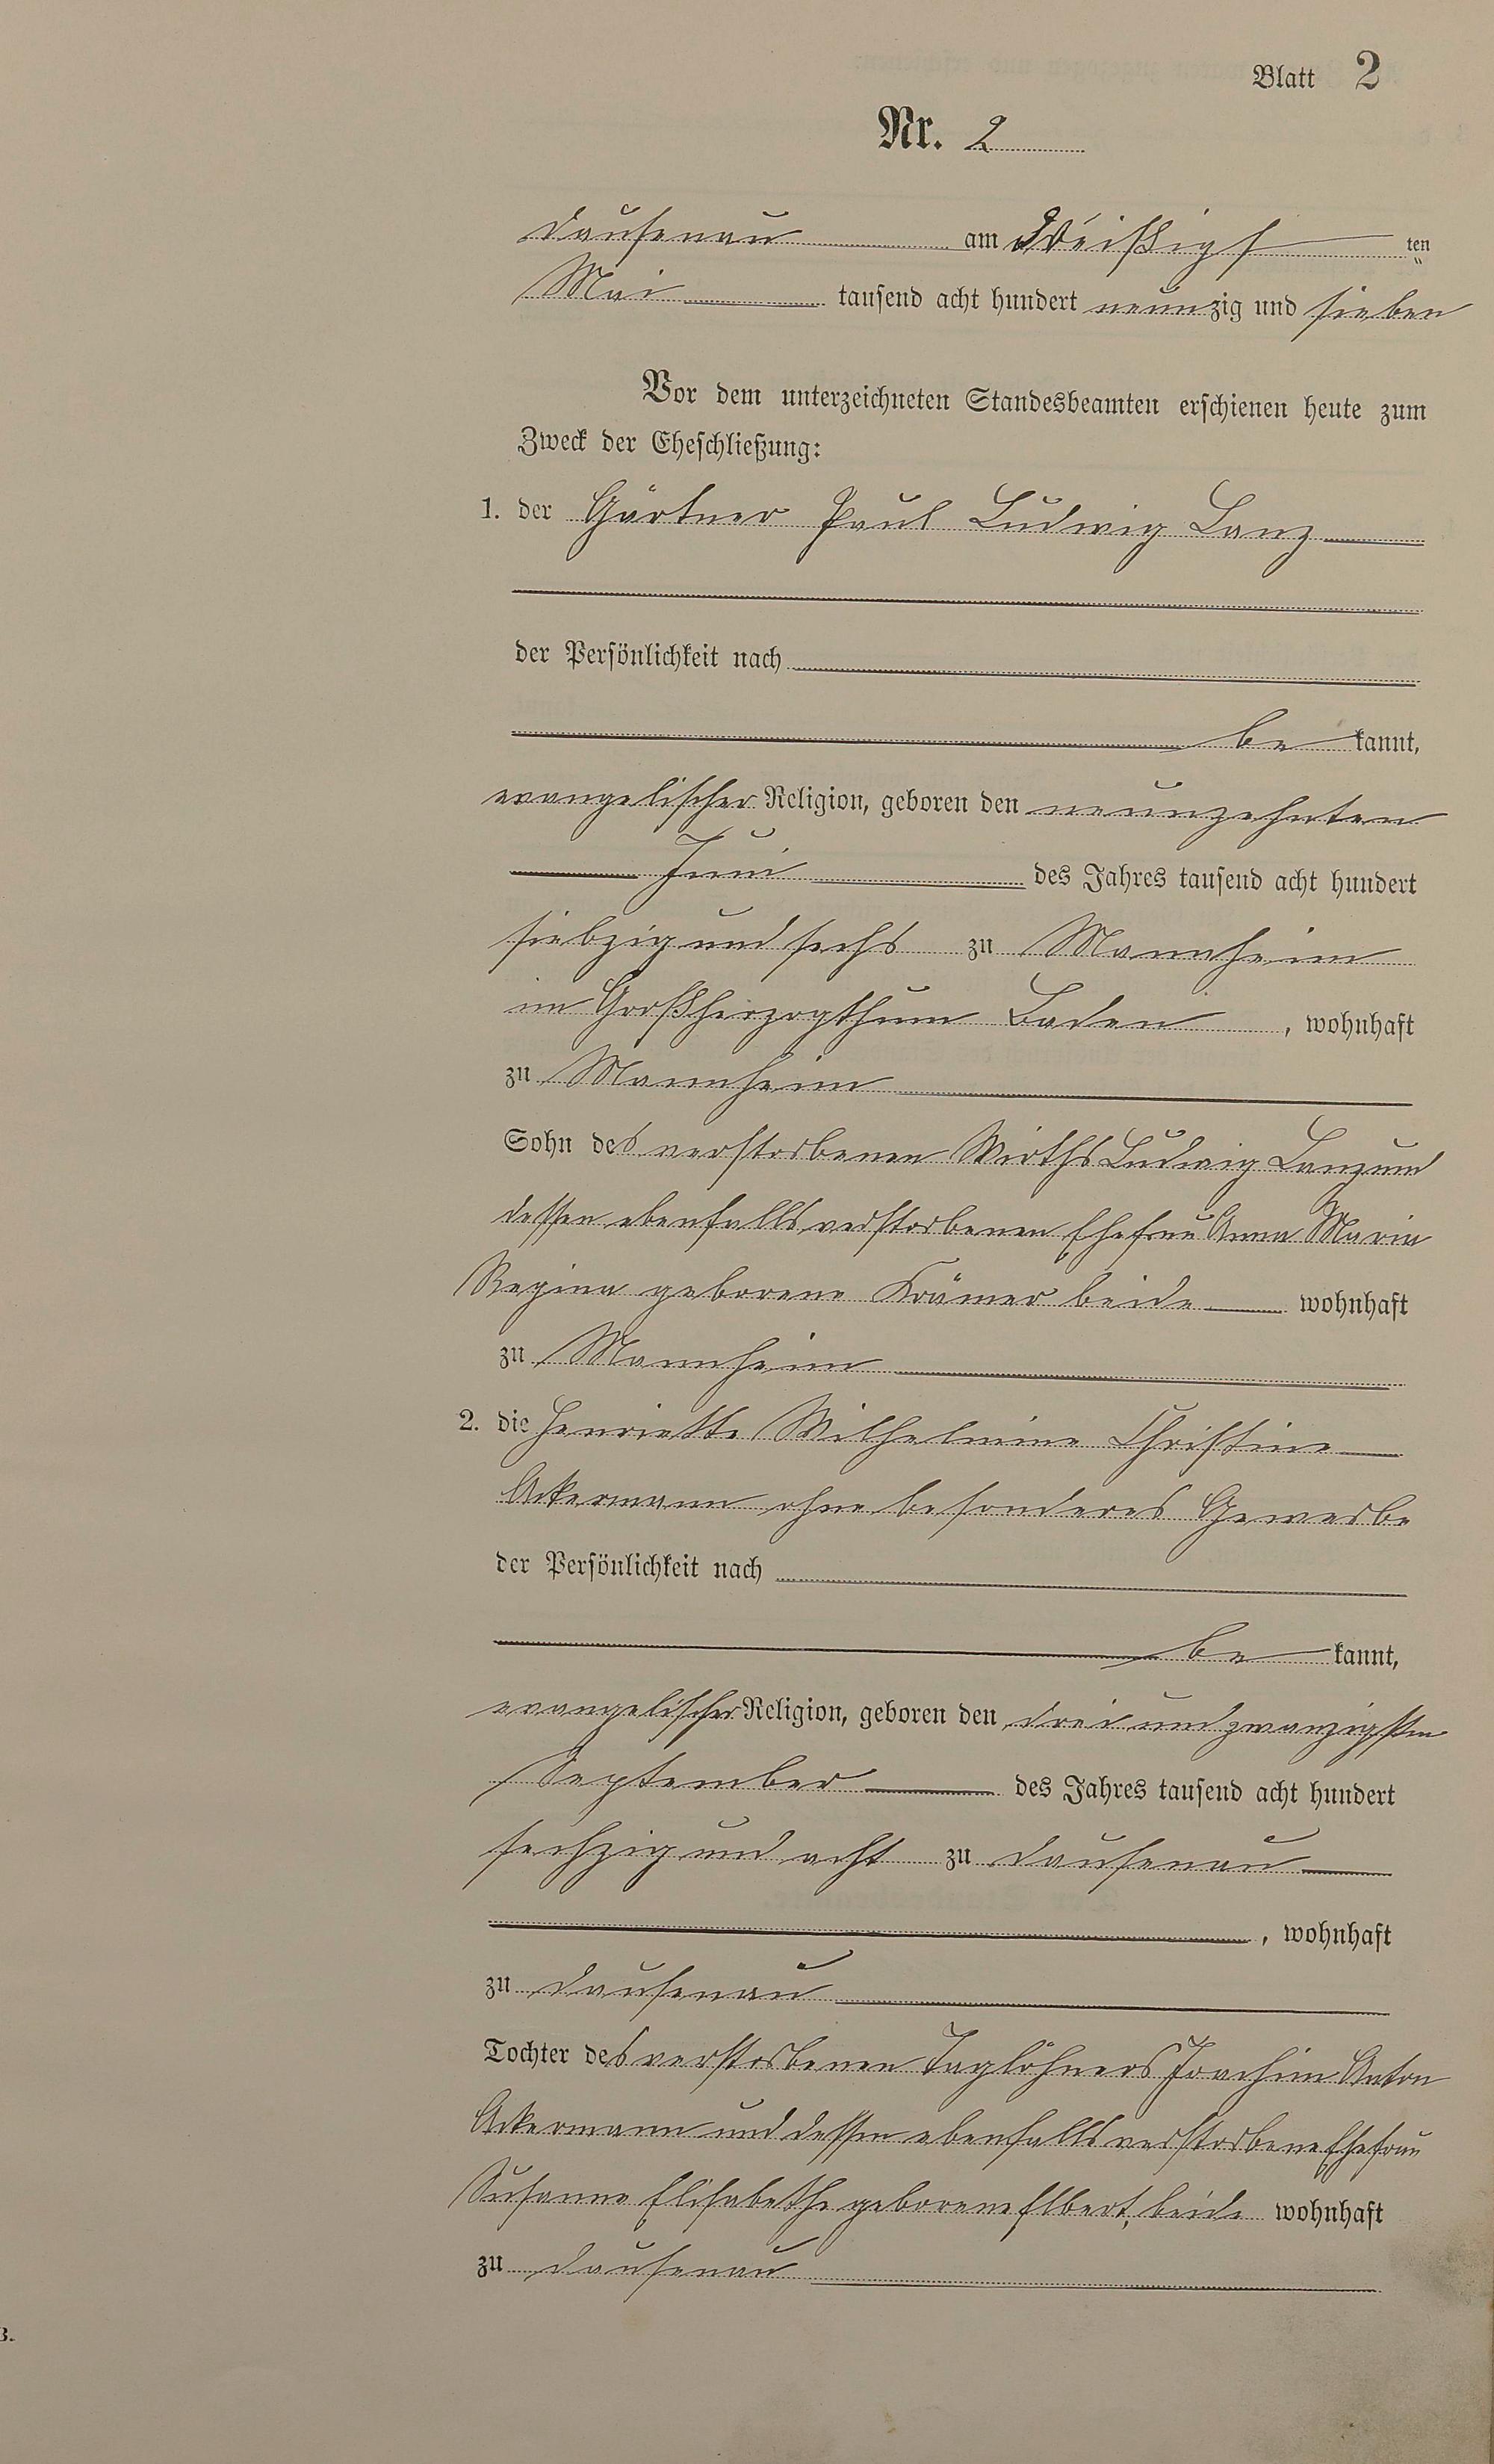 Blatt 2
Nr. 2
Dausenau am Dreißigst ten
Mai tausend acht hundert neunzig und sieben
Vor dem unterzeichneten Standesbeamten erschienen heute zum
Zweck der Eheschließung:
1. der Gärtner Paul Ludwig Lanz
der Persönlichkeit nach
be kannt,
evangelischer Religion, geboren den neunzehnten
Juni des Jahres tausend acht hundert
siebzig und sechs zu Mannheim
im Großherzogthum Baden, wohnhaft
zu Mannheim
Sohn des verstorbenen Wirths Ludwig Lanz und
dessen ebenfalls verstorbenen Ehefrau Anna Maria
Regina geborene Krämer beide wohnhaft
zu Mannheim
2. die Henriette Wilhelmine Christine
Ackermann ohne besonderes Gewerbe
der Persönlichkeit nach
be kannt,
evangelischer Religion, geboren den drei und zwanzigsten
September des Jahres tausend acht hundert
sechzig und acht zu Dausenau
, wohnhaft
zu Dausenau
Tochter des verstorbenen Taglöhners Joachim Anton
Ackermann und dessen ebenfalls verstorbene Ehefrau
Susanne Elisabethe geborene Elbert, beide wohnhaft
zu Dausenau
B.